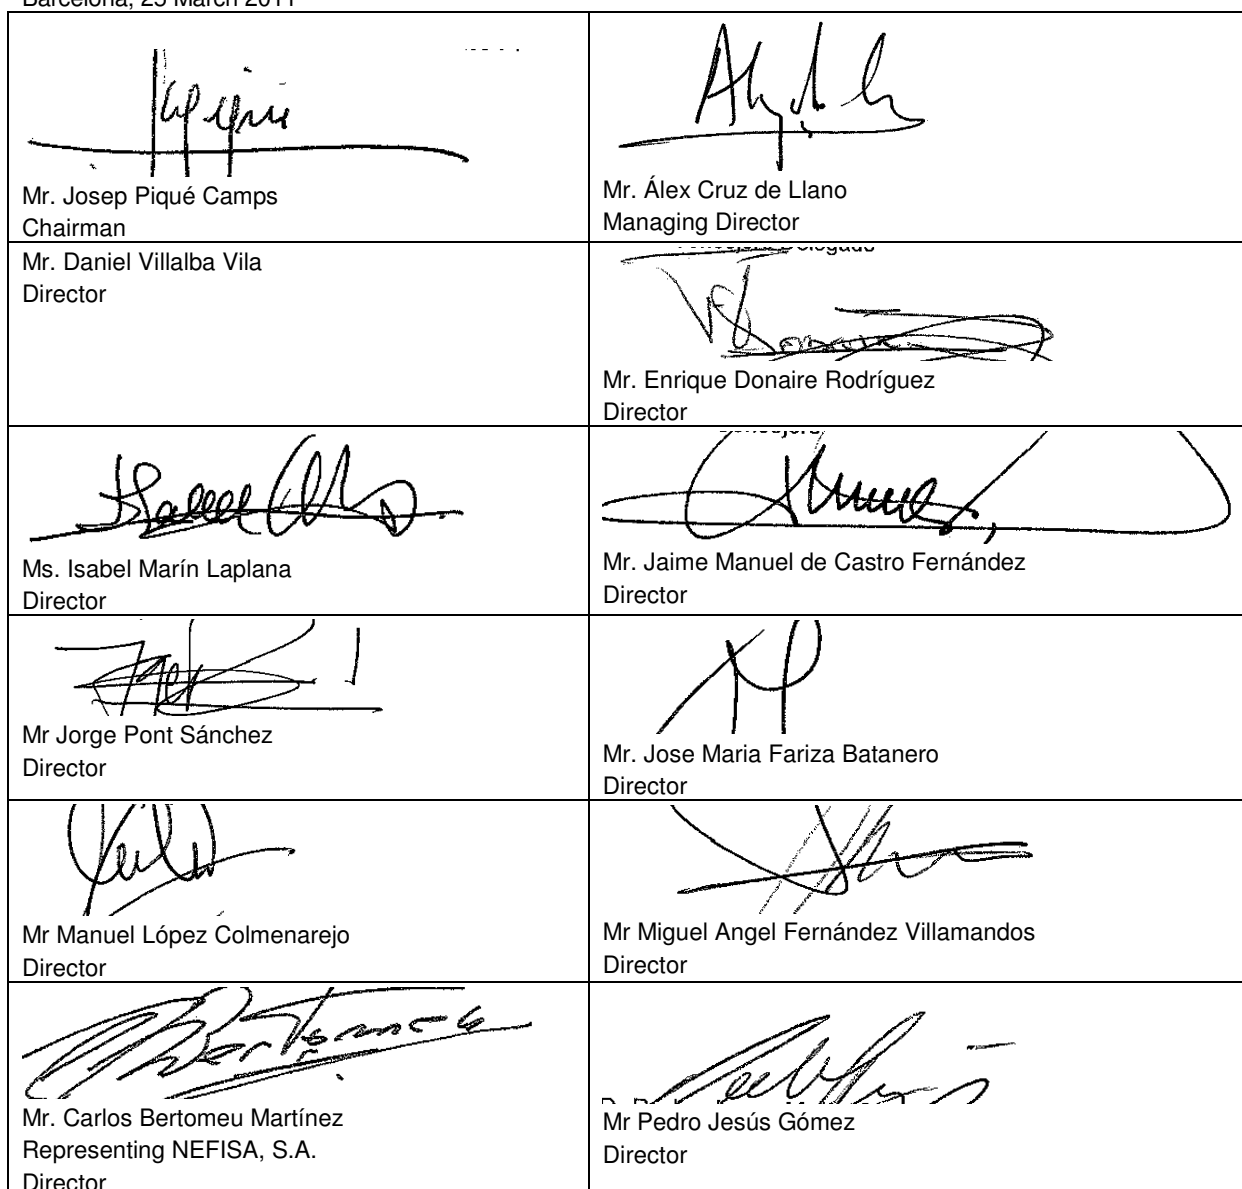 Barcelona, 25 March 2011
Mr. Josep Piqué Camps
Chairman
Mr. Álex Cruz de Llano
Managing Director
Mr. Daniel Villalba Vila
Director
Mr. Enrique Donaire Rodríguez
Director
Ms. Isabel Marín Laplana
Director
Mr. Jaime Manuel de Castro Fernández
Director
Mr Jorge Pont Sánchez
Director
Mr. Jose Maria Fariza Batanero
Director
Mr Manuel López Colmenarejo
Director
Mr Miguel Angel Fernández Villamandos
Director
Mr. Carlos Bertomeu Martínez
Representing NEFISA, S.A.
Director
Mr Pedro Jesús Gómez
Director